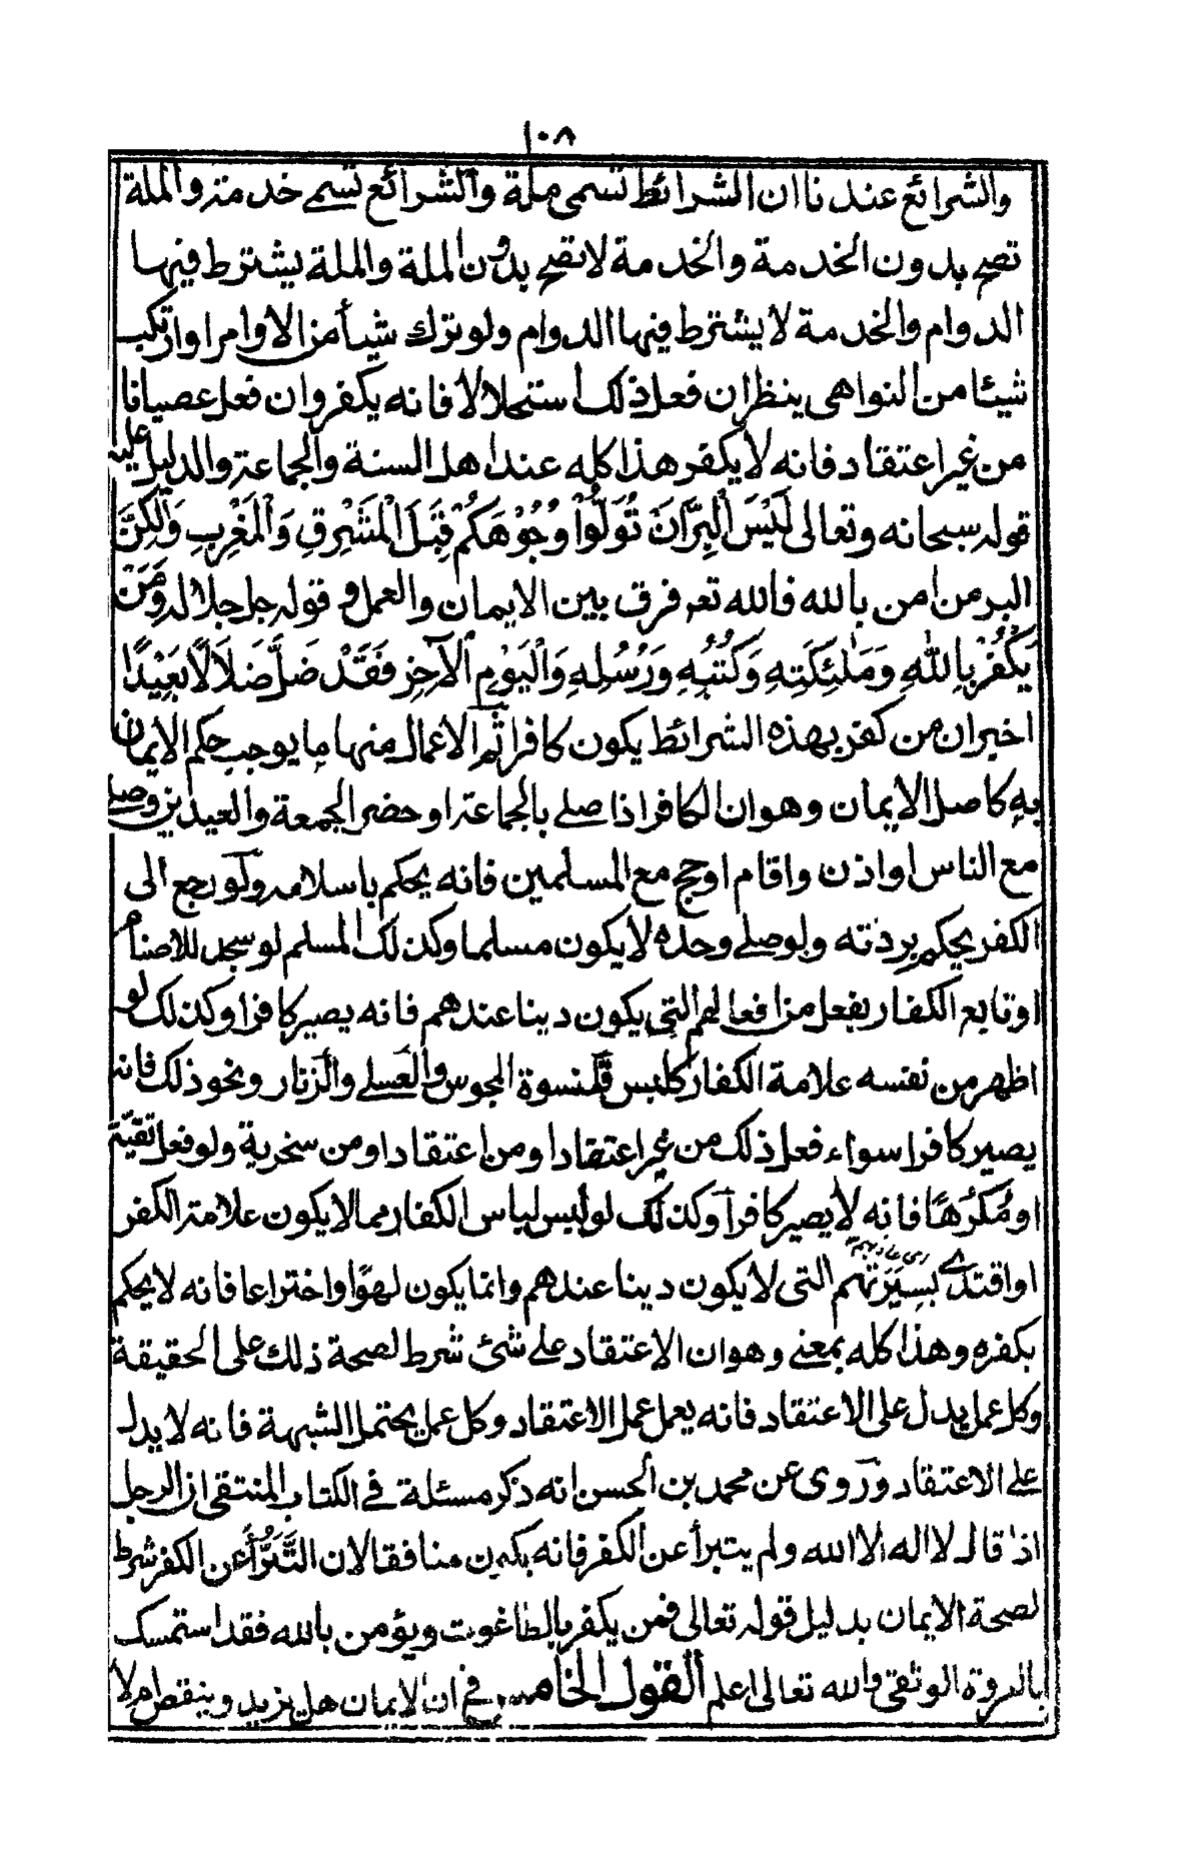 ١٠٨
والشرائع عندنا ان الشرائط تسمى ملة والشرائع تسمے خدمة والملة
تصح بدون الخدمة والخدمة لا تصح بدون الملة والملة يشترط فيها
الدوام والخدمة لا يشترط فيها الدوام ولو ترك شيأ من الاوامر او ارتكب
شيئا من النواهى ينظر ان فعل ذلك استحلالا فانه يكفر وان فعل عصيانا
من غير اعتقاد فانه لا يكفر هذا كله عند اهل السنة والجماعة والدليل عليه
قوله سبحانه وتعالى لَيْسَ الْبِرَّ اَنْ تُوَلُّوْا وُجُوْهَكُمْ قِبَلَ الْمَشْرِقِ وَالْمَغْرِبِ وَلٰكِنَّ
البر من امن بالله فالله تعر فرق بين الايمان والعمل و قوله جل جلاله وَمَنْ
يَكْفُرْ بِاللّٰهِ وَمَلٰئِكَتِهِ وَكُتُبِهِ وَرُسُلِهِ وَالْيَوْمِ الْاٰخِرِ فَقَدْ ضَلَّ ضَلَالًا بَعِيْدًا
اخبر ان من كفر بهذه الشرائط يكون كافرا ثم الاعمال منها ما يوجب حكم الايمان
به كاصل الايمان وهو ان الكافر اذا صلے بالجماعة او حضر الجمعة والعيدين وصلے
مع الناس او اذن واقام او حج مع المسلمين فانه يحكم باسلامه ولو رجع الى
الكفر يحكم بردته ولو صلے وحده لا يكون مسلما وكذلك المسلم لو سجد للاصنام
او تابع الكفار بفعل من افعالهم التى يكون دينا عندهم فانه يصير كافرا وكذلك لو
اظهر من نفسه علامة الكفار كلبس قلنسوة المجوس والعسلے والزنار ونحو ذلك فانه
يصير كافرا سواء فعل ذلك من غير اعتقاد او من اعتقاد او من سخرية ولو فعل تقيّة
او مُكْرَهًا فانه لا يصير كافرا وكذلك لو لبس لباس الكفار مما لا يكون علامة الكفر
او اقتدے بسِيْرَتهم التى لا يكون دينا عندهم وانما يكون لهوًا واختراعا فانه لا يحكم
بكفره وهذا كله بمعنے وهو ان الاعتقاد علے شئ شرط لصحة ذلك على الحقيقة
وكل عمل يدل على الاعتقاد فانه يعمل عمل الاعتقاد وكل عمل يحتمل الشبهة فانه لا يدل
علے الاعتقاد وروى عن محمد بن الحسن انه ذكر مسئلة فے الكتاب المنتقى ان الرجل
اذا قال لا اله الا الله ولم يتبرأ عن الكفر فانه يكون منافقا لان التَّبَرُّأَ عن الكفر شرط
لصحة الايمان بدليل قوله تعالى فمن يكفر بالطاغوت ويؤمن بالله فقد استمسك
بالعروة الوثقى والله تعالى اعلم القول الخامس فے ان الايمان هل يزيد وينقص ام لا